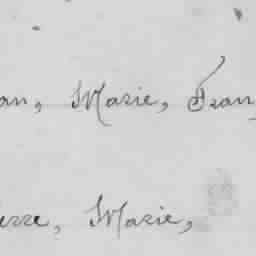 an, Marie, Fran
erre, Marie,